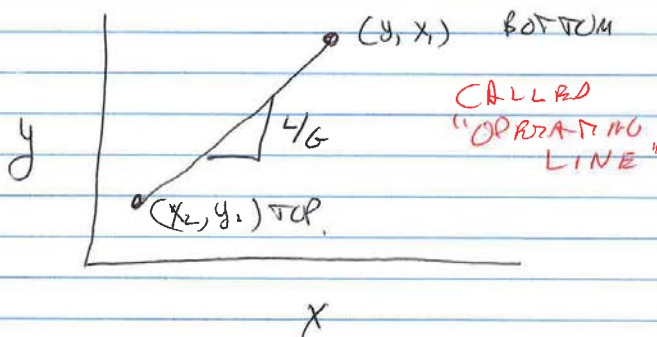 (y, x₁) BOTTOM
CALLED
"OPERATING
LINE"
y
L/G
(x₂, y₂) TOP.
x